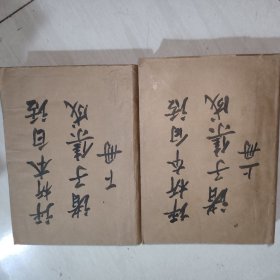 评析本白话
诸子集成
下册
评析本白话
诸子集成
上册